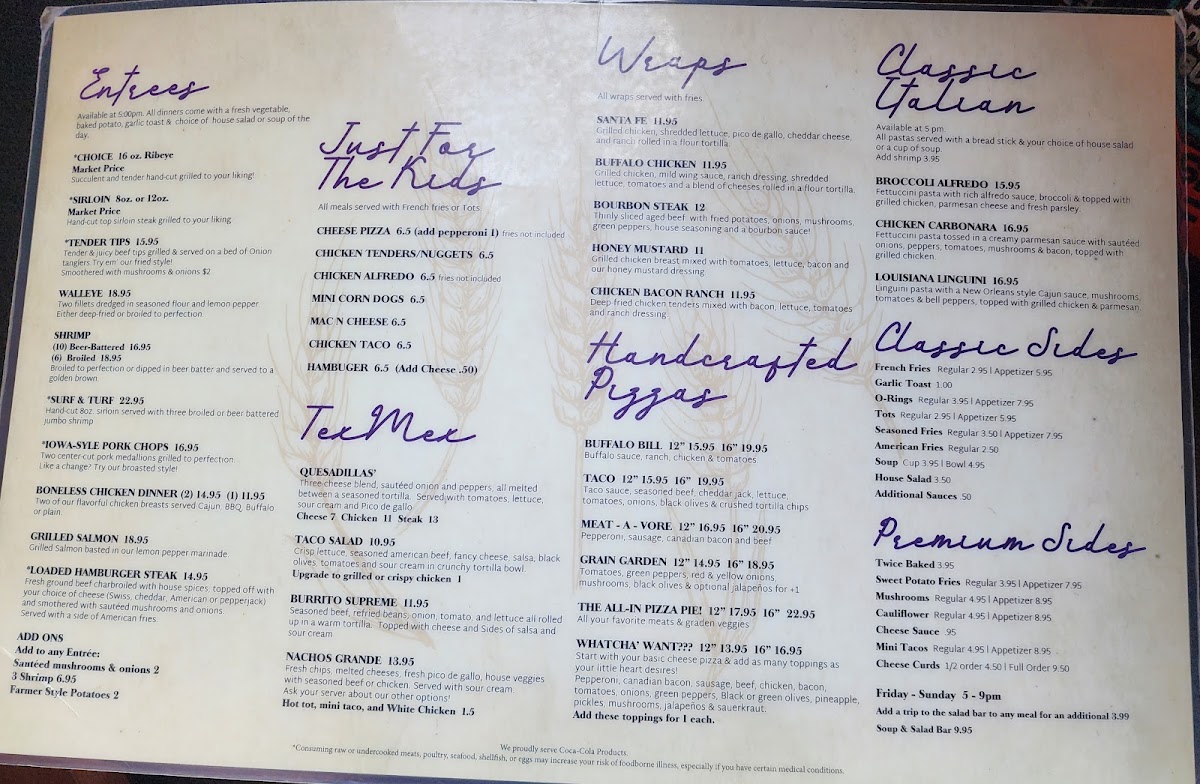 Entrees
Available at 5:00pm. All dinners come with a fresh vegetable,
baked potato, garlic toast & choice of house salad or soup of the
day.
*CHOICE 16 oz. Ribeye
Market Price
Succulent and tender hand-cut grilled to your liking!
*SIRLOIN 8oz. or 12oz.
Market Price
Hand-cut top sirloin steak grilled to your liking.
*TENDER TIPS 15.95
Tender & juicy beef tips grilled & served on a bed of Onion
tanglers Try em' our fried style!
Smoothered with mushrooms & onions $2
WALLEYE 18.95
Two fillets dredged in seasoned flour and lemon pepper.
Either deep fried or broiled to perfection.
SHRIMP
(10) Beer-Battered 16.95
(6) Broiled 18.95
Broiled to perfection or dipped in beer batter and served to a
golden brown.
*SURF & TURF 22.95
Hand-cut 8oz. sirloin served with three broiled or beer battered
jumbo shrimp
*IOWA-SYLE PORK CHOPS 16.95
Two center-cut pork medallions grilled to perfection.
Like a change? Try our broasted style!
BONELESS CHICKEN DINNER (2) 14.95 (1) 11.95
Two of our flavorful chicken breasts served Cajun, BBQ, Buffalo
or plain.
GRILLED SALMON 18.95
Grilled Salmon basted in our lemon pepper marinade
*LOADED HAMBURGER STEAK 14.95
Fresh ground beef charbroiled with house spices, topped off with
your choice of cheese (Swiss, cheddar, American or pepperjack)
and smothered with sautéed mushrooms and onions.
Served with a side of American fries.
ADD ONS
Add to any Entrée:
Sautéed mushrooms & onions 2
3 Shrimp 6.95
Farmer Style Potatoes 2
Just For
The Kids
All meals served with French fries or Tots
CHEESE PIZZA 6.5 (add pepperoni 1) fries not included
CHICKEN TENDERS/NUGGETS 6.5
CHICKEN ALFREDO 6.5 fries not included
MINI CORN DOGS 6.5
MAC N CHEESE 6.5
CHICKEN TACO 6.5
HAMBUGER 6.5 (Add Cheese .50)
TexMex
QUESADILLAS'
Three cheese blend, sautéed onion and peppers, all melted
between a seasoned tortilla. Served with tomatoes, lettuce,
sour cream and Pico de gallo
Cheese 7 Chicken 11 Steak 13
TACO SALAD 10.95
Crisp lettuce, seasoned american beef, fancy cheese, salsa, black
olives, tomatoes and sour cream in crunchy tortilla bowl.
Upgrade to grilled or crispy chicken 1
BURRITO SUPREME 11.95
Seasoned beef, refried beans, onion, tomato, and lettuce all rolled
up in a warm tortilla. Topped with cheese and Sides of salsa and
sour cream
NACHOS GRANDE 13.95
Fresh chips, melted cheeses, fresh pico de gallo, house veggies
with seasoned beef or chicken. Served with sour cream.
Ask your server about our other options!
Hot tot, mini taco, and White Chicken 1.5
Wraps
All wraps served with fries.
SANTA FE 11.95
Grilled chicken, shredded lettuce, pico de gallo, cheddar cheese,
and ranch rolled in a flour tortilla.
BUFFALO CHICKEN 11.95
Grilled chicken, mild wing sauce, ranch dressing, shredded
lettuce, tomatoes and a blend of cheeses rolled in a flour tortilla.
BOURBON STEAK 12
Thinly sliced aged beef with fried potatoes, onions, mushrooms,
green peppers, house seasoning and a bourbon sauce!
HONEY MUSTARD 11
Grilled chicken breast mixed with tomatoes, lettuce, bacon and
our honey mustard dressing
CHICKEN BACON RANCH 11.95
Deep fried chicken tenders mixed with bacon, lettuce, tomatoes
and ranch dressing
Handcrafted
Pizzas
BUFFALO BILL 12" 15.95 16" 19.95
Buffalo sauce, ranch, chicken & tomatoes
TACO 12" 15.95 16" 19.95
Taco sauce, seasoned beef, cheddar jack, lettuce,
tomatoes, onions, black olives & crushed tortilla chips
MEAT - A - VORE 12" 16.95 16" 20.95
Pepperoni, sausage, canadian bacon and beef
GRAIN GARDEN 12" 14.95 16" 18.95
Tomatoes, green peppers, red & yellow onions
mushrooms, black olives & optional jalapeños for +1
THE ALL-IN PIZZA PIE! 12" 17.95 16" 22.95
All your favorite meats & graden veggies
WHATCHA' WANT??? 12" 13.95 16" 16.95
Start with your basic cheese pizza & add as many toppings as
your little heart desires!
Pepperoni, canadian bacon, sausage, beef, chicken, bacon,
tomatoes, onions, green peppers, Black or green olives, pineapple,
pickles, mushrooms, jalapeños & sauerkraut.
Add these toppings for 1 each.
Classic
Italian
Available at 5 pm
All pastas served with a bread stick & your choice of house salad
or a cup of soup.
Add shrimp 3.95
BROCCOLI ALFREDO 15.95
Fettuccini pasta with rich alfredo sauce, broccoli & topped with
grilled chicken, parmesan cheese and fresh parsley.
CHICKEN CARBONARA 16.95
Fettuccini pasta tossed in a creamy parmesan sauce with sautéed
onions, peppers, tomatoes, mushrooms & bacon, topped with
grilled chicken.
LOUISIANA LINGUINI 16.95
Linguini pasta with a New Orleans style Cajun sauce, mushrooms,
tomatoes & bell peppers, topped with grilled chicken & parmesan.
Classic Sides
French Fries Regular 2.95 | Appetizer 5.95
Garlic Toast 1.00
O-Rings Regular 3.95 | Appetizer 7.95
Tots Regular 2.95 | Appetizer 5.95
Seasoned Fries Regular 3.50 | Appetizer 7.95
American Fries Regular 2.50
Soup Cup 3.95 | Bowl 4.95
House Salad 3.50
Additional Sauces .50
Premium Sides
Twice Baked 3.95
Sweet Potato Fries Regular 3.95 | Appetizer 7.95
Mushrooms Regular 4.95 | Appetizer 8.95
Cauliflower Regular 4.95 | Appetizer 8.95
Cheese Sauce .95
Mini Tacos Regular 4.95 | Appetizer 8.95
Cheese Curds 1/2 order 4.50 | Full Order 9.50
Friday - Sunday 5 - 9pm
Add a trip to the salad bar to any meal for an additional 3.99
Soup & Salad Bar 9.95
We proudly serve Coca-Cola Products.
*Consuming raw or undercooked meats, poultry, seafood, shellfish, or eggs may increase your risk of foodborne illness, especially if you have certain medical conditions.